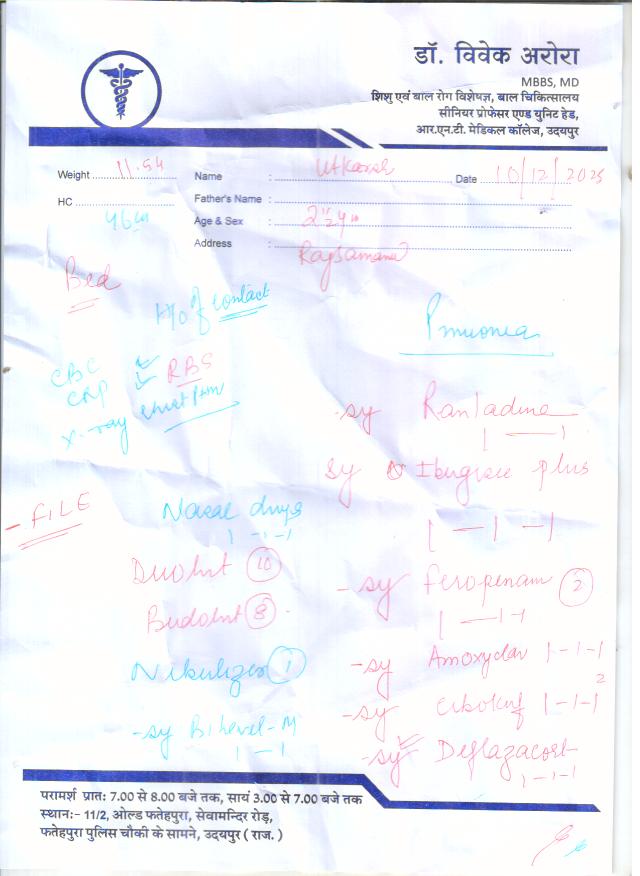 डॉ. विवेक अरोरा
MBBS, MD
शिशु एवं बाल रोग विशेषज्ञ, बाल चिकित्सालय
सीनियर प्रोफेसर एण्ड युनिट हेड,
आर.एन.टी. मेडिकल कॉलेज, उदयपुर
Weight 11.54 Name : Utkarsh Date 10/12/2025
HC 46cm Father's Name :
Age & Sex :
Address :
Bed
H/o of contact
Pnuonea
CBC
CRP
RBS
X-ray chest
- sy Ranladine
1 — 1
sy Ibugrace plus
1 — 1 — 1
- FILE
Nasal drops
1 - 1 - 1
Duolnt 10
- sy Feropenam 2
1 — 1 - 1
Budolnt 8
- sy Amoxyclav 1-1-1
2
Nibulizer 1
- sy 1-1-1
- sy Bilevel-M
1 - 1
- sy Deflazacort
1-1-1
परामर्श प्रात: 7.00 से 8.00 बजे तक, सायं 3.00 से 7.00 बजे तक
स्थान:- 11/2, ओल्ड फतेहपुरा, सेवामन्दिर रोड़,
फतेहपुरा पुलिस चौकी के सामने, उदयपुर ( राज. )